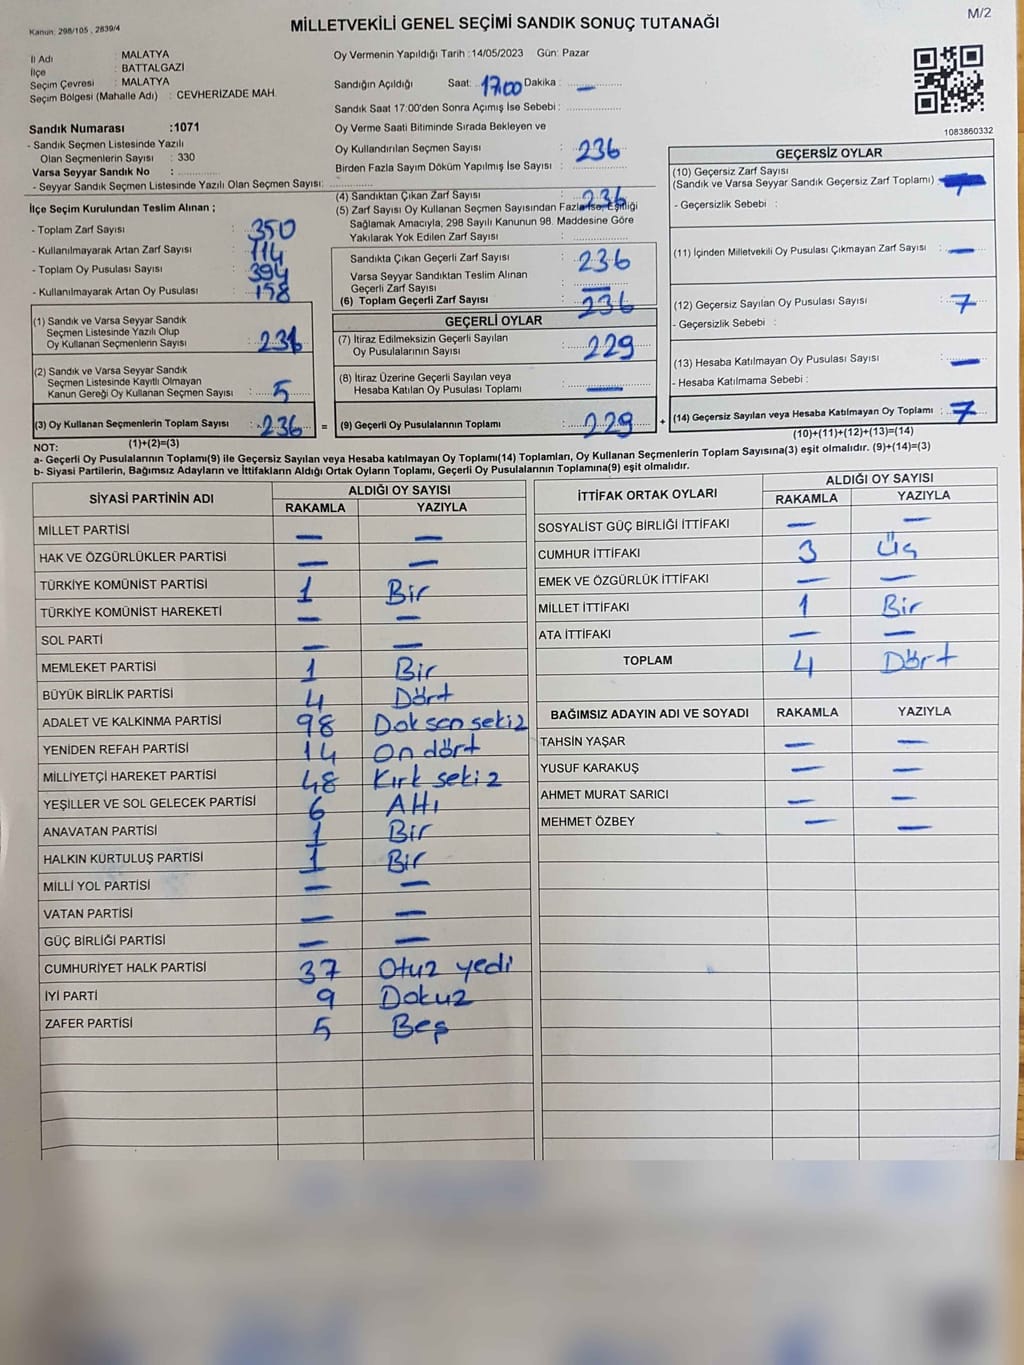 M/2
Kanun: 298/105 , 2839/4
MİLLETVEKİLİ GENEL SEÇİMİ SANDIK SONUÇ TUTANAĞI
İl Adı : MALATYA
İlçe : BATTALGAZİ
Seçim Çevresi : MALATYA
Seçim Bölgesi (Mahalle Adı) : CEVHERİZADE MAH.
Sandık Numarası :1071
- Sandık Seçmen Listesinde Yazılı
Olan Seçmenlerin Sayısı : 330
Varsa Seyyar Sandık No :
- Seyyar Sandık Seçmen Listesinde Yazılı Olan Seçmen Sayısı:
Oy Vermenin Yapıldığı Tarih :14/05/2023 Gün: Pazar
Sandığın Açıldığı Saat: 17.00 Dakika : —
Sandık Saat 17:00'den Sonra Açımış İse Sebebi :
Oy Verme Saati Bitiminde Sırada Bekleyen ve
Oy Kullandırılan Seçmen Sayısı : 236
Birden Fazla Sayım Döküm Yapılmış İse Sayısı :
1083860332
İlçe Seçim Kurulundan Teslim Alınan ;
- Toplam Zarf Sayısı : 350
- Kullanılmayarak Artan Zarf Sayısı : 114
- Toplam Oy Pusulası Sayısı : 394
- Kullanılmayarak Artan Oy Pusulası : 158
(1) Sandık ve Varsa Seyyar Sandık
Seçmen Listesinde Yazılı Olup
Oy Kullanan Seçmenlerin Sayısı : 231
(2) Sandık ve Varsa Seyyar Sandık
Seçmen Listesinde Kayıtlı Olmayan
Kanun Gereği Oy Kullanan Seçmen Sayısı : 5
(3) Oy Kullanan Seçmenlerin Toplam Sayısı : 236 =
(1)+(2)=(3)
(4) Sandıktan Çıkan Zarf Sayısı : 236
(5) Zarf Sayısı Oy Kullanan Seçmen Sayısından Fazla İse, Eşitliği
Sağlamak Amacıyla, 298 Sayılı Kanunun 98. Maddesine Göre
Yakılarak Yok Edilen Zarf Sayısı :
Sandıkta Çıkan Geçerli Zarf Sayısı : 236
Varsa Seyyar Sandıktan Teslim Alınan
Geçerli Zarf Sayısı : —
(6) Toplam Geçerli Zarf Sayısı : 236
GEÇERLİ OYLAR
(7) İtiraz Edilmeksizin Geçerli Sayılan
Oy Pusulalarının Sayısı : 229
(8) İtiraz Üzerine Geçerli Sayılan veya
Hesaba Katılan Oy Pusulası Toplamı : —
(9) Geçerli Oy Pusulalarının Toplamı : 229 +
GEÇERSİZ OYLAR
(10) Geçersiz Zarf Sayısı
(Sandık ve Varsa Seyyar Sandık Geçersiz Zarf Toplamı) :
- Geçersizlik Sebebi :
(11) İçinden Milletvekili Oy Pusulası Çıkmayan Zarf Sayısı : —
(12) Geçersiz Sayılan Oy Pusulası Sayısı : 7
- Geçersizlik Sebebi :
(13) Hesaba Katılmayan Oy Pusulası Sayısı : —
- Hesaba Katılmama Sebebi :
(14) Geçersiz Sayılan veya Hesaba Katılmayan Oy Toplamı : 7
(10)+(11)+(12)+(13)=(14)
NOT:
a- Geçerli Oy Pusulalarının Toplamı(9) ile Geçersiz Sayılan veya Hesaba katılmayan Oy Toplamı(14) Toplamları, Oy Kullanan Seçmenlerin Toplam Sayısına(3) eşit olmalıdır. (9)+(14)=(3)
b- Siyasi Partilerin, Bağımsız Adayların ve İttifakların Aldığı Ortak Oyların Toplamı, Geçerli Oy Pusulalarının Toplamına(9) eşit olmalıdır.
SİYASİ PARTİNİN ADI ALDIĞI OY SAYISI
RAKAMLA YAZIYLA
MİLLET PARTİSİ — —
HAK VE ÖZGÜRLÜKLER PARTİSİ — —
TÜRKİYE KOMÜNİST PARTİSİ 1 Bir
TÜRKİYE KOMÜNİST HAREKETİ — —
SOL PARTİ — —
MEMLEKET PARTİSİ 1 Bir
BÜYÜK BİRLİK PARTİSİ 4 Dört
ADALET VE KALKINMA PARTİSİ 98 Doksan sekiz
YENİDEN REFAH PARTİSİ 14 On dört
MİLLİYETÇİ HAREKET PARTİSİ 48 Kırk sekiz
YEŞİLLER VE SOL GELECEK PARTİSİ 6 Altı
ANAVATAN PARTİSİ 1 Bir
HALKIN KURTULUŞ PARTİSİ 1 Bir
MİLLİ YOL PARTİSİ — —
VATAN PARTİSİ — —
GÜÇ BİRLİĞİ PARTİSİ — —
CUMHURİYET HALK PARTİSİ 37 Otuz yedi
İYİ PARTİ 9 Dokuz
ZAFER PARTİSİ 5 Beş
İTTİFAK ORTAK OYLARI ALDIĞI OY SAYISI
RAKAMLA YAZIYLA
SOSYALİST GÜÇ BİRLİĞİ İTTİFAKI — —
CUMHUR İTTİFAKI 3 Üç
EMEK VE ÖZGÜRLÜK İTTİFAKI — —
MİLLET İTTİFAKI 1 Bir
ATA İTTİFAKI — —
TOPLAM 4 Dört
BAĞIMSIZ ADAYIN ADI VE SOYADI RAKAMLA YAZIYLA
TAHSİN YAŞAR — —
YUSUF KARAKUŞ — —
AHMET MURAT SARICI — —
MEHMET ÖZBEY — —